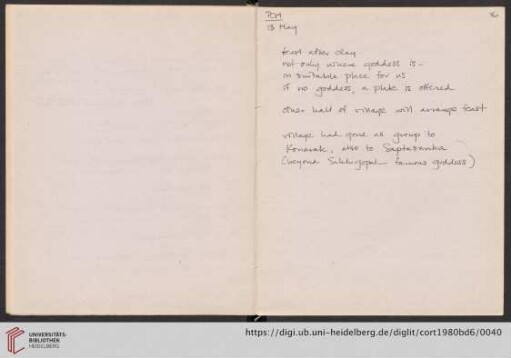 TOM
13 May
feast after day
not only where goddess is -
in suitable place for us
if no goddess, a plate is offered
other half of village will arrange feast
village had gone as group to
Konarak, also to
(beyond Sakhigopal - famous goddess)
UNIVERSITÄTS-
BIBLIOTHEK
HEIDELBERG
https://digi.ub.uni-heidelberg.de/diglit/cort1980bd6/0040